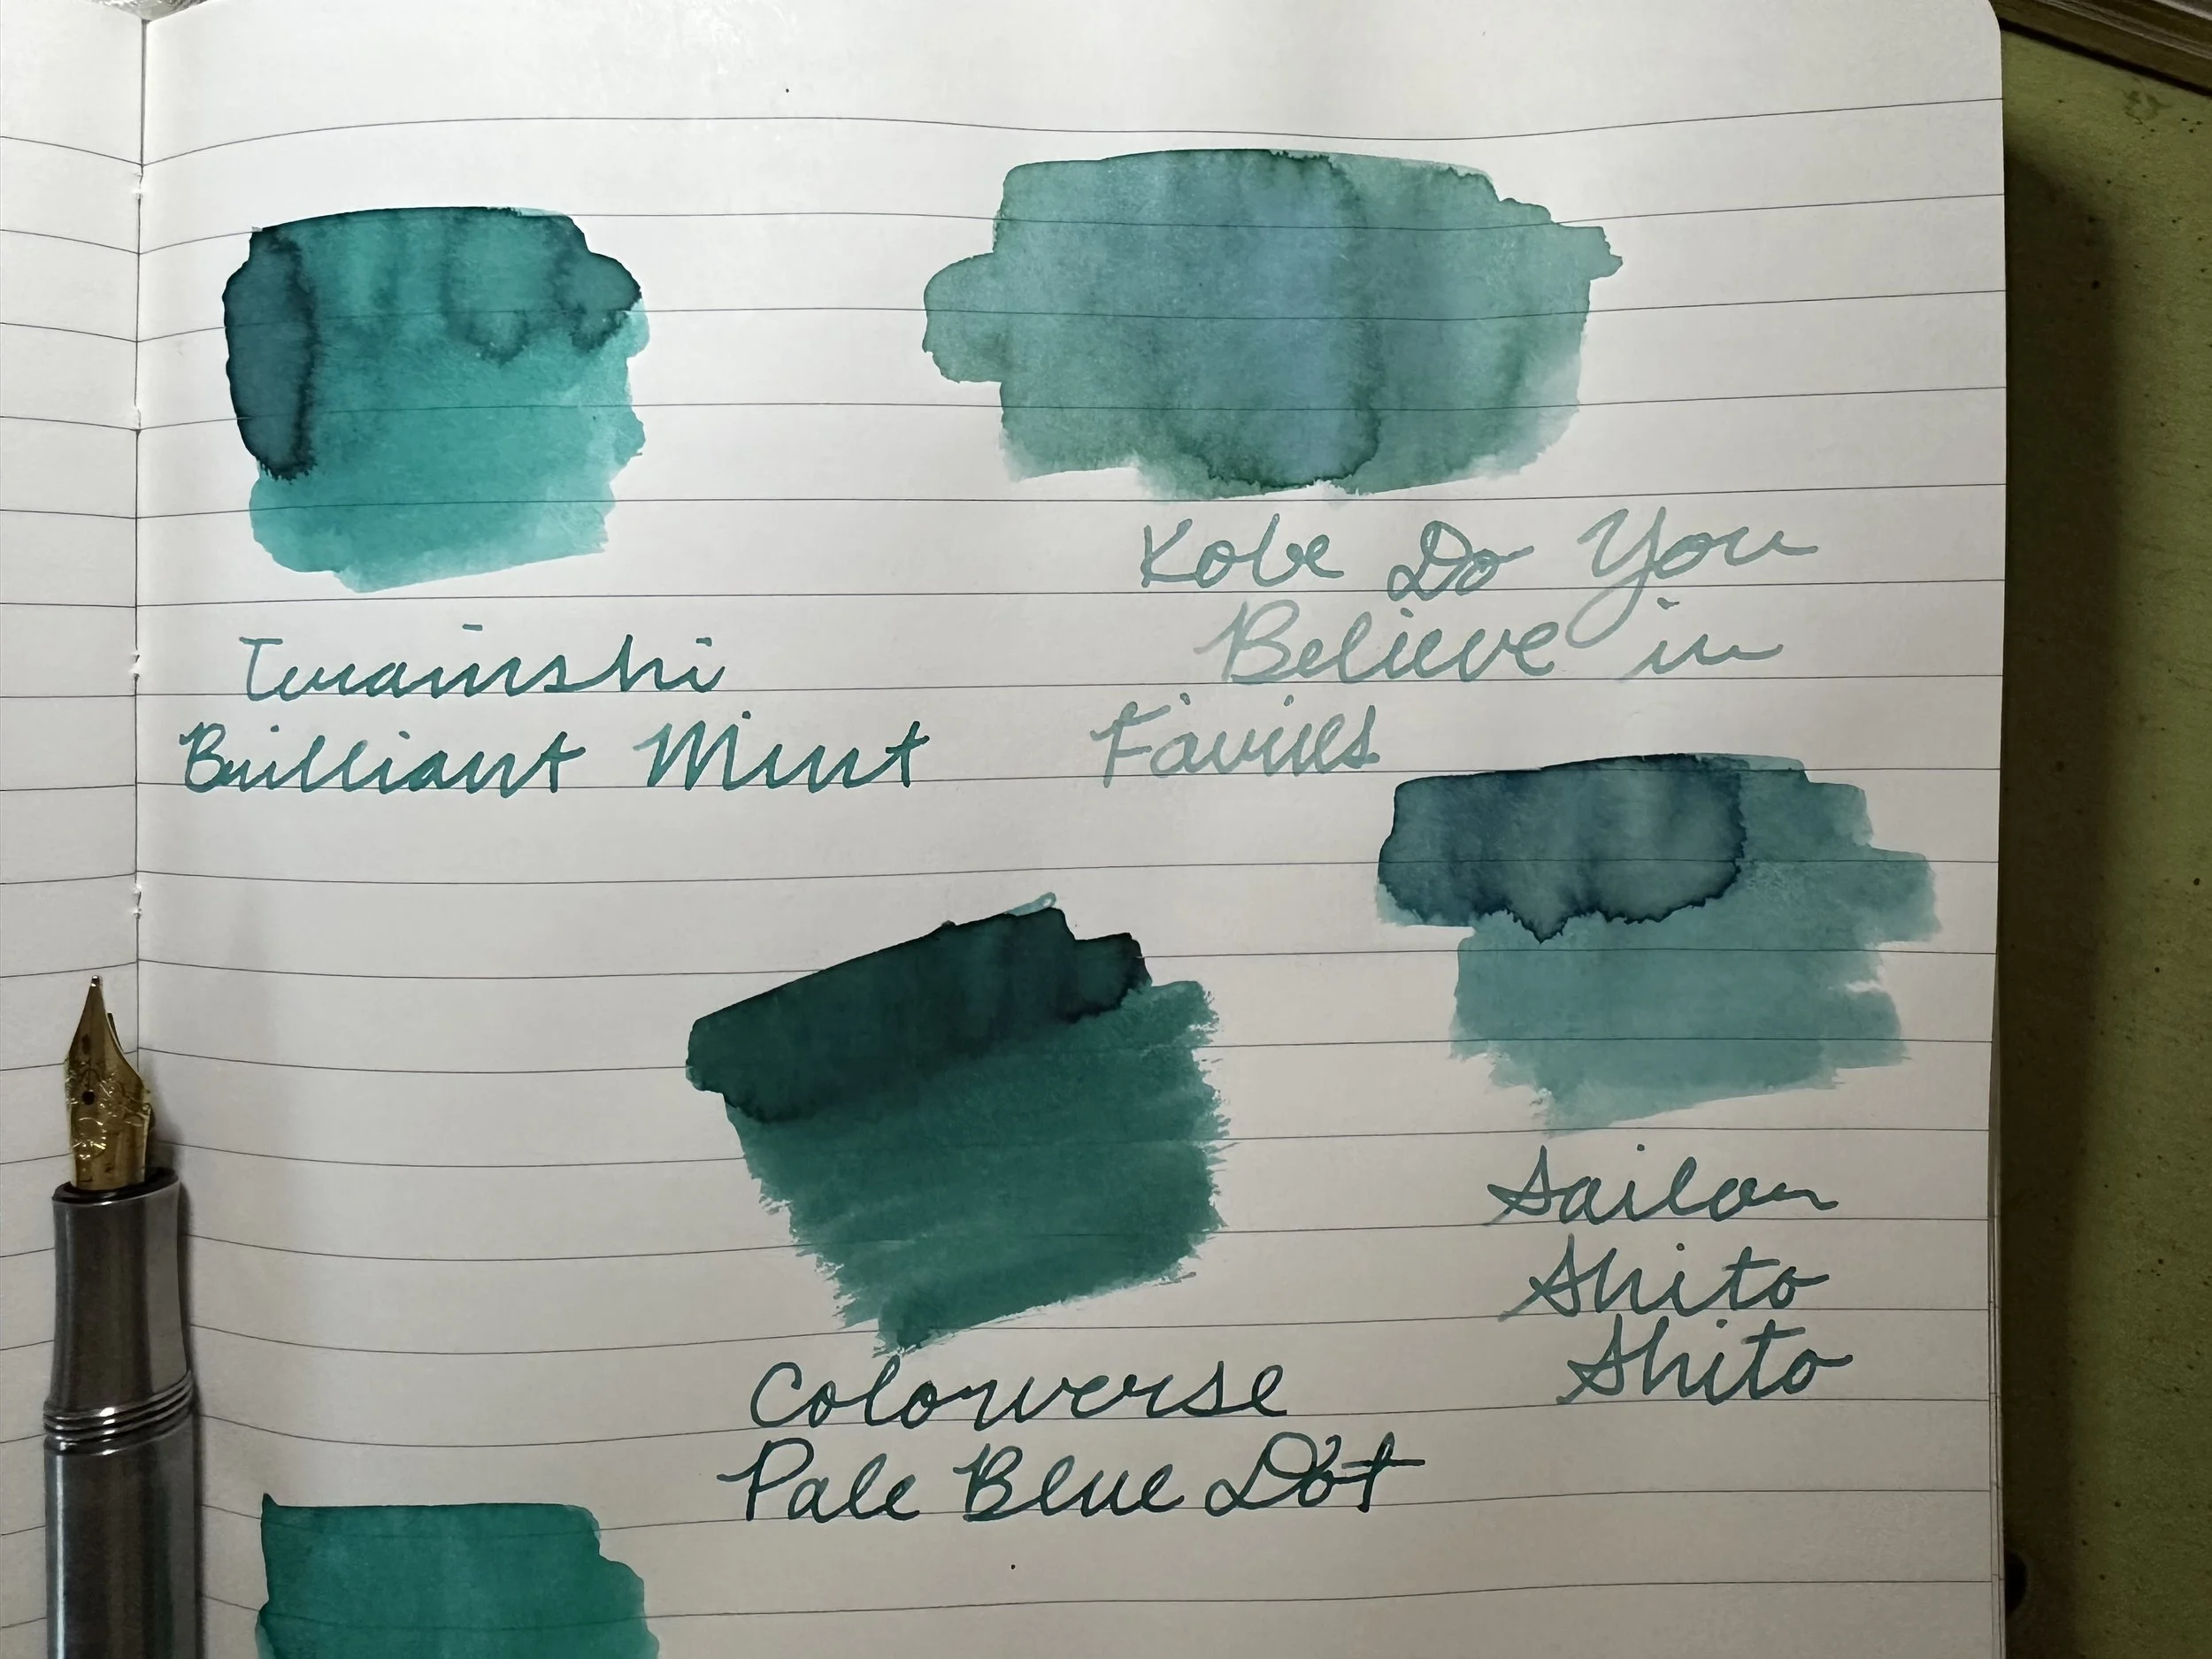 Terainshi
Brilliant Mint
Kobe Do You
Believe in
Fairies
Colorverse
Pale Blue Dot
Sailor
Shito
Shito